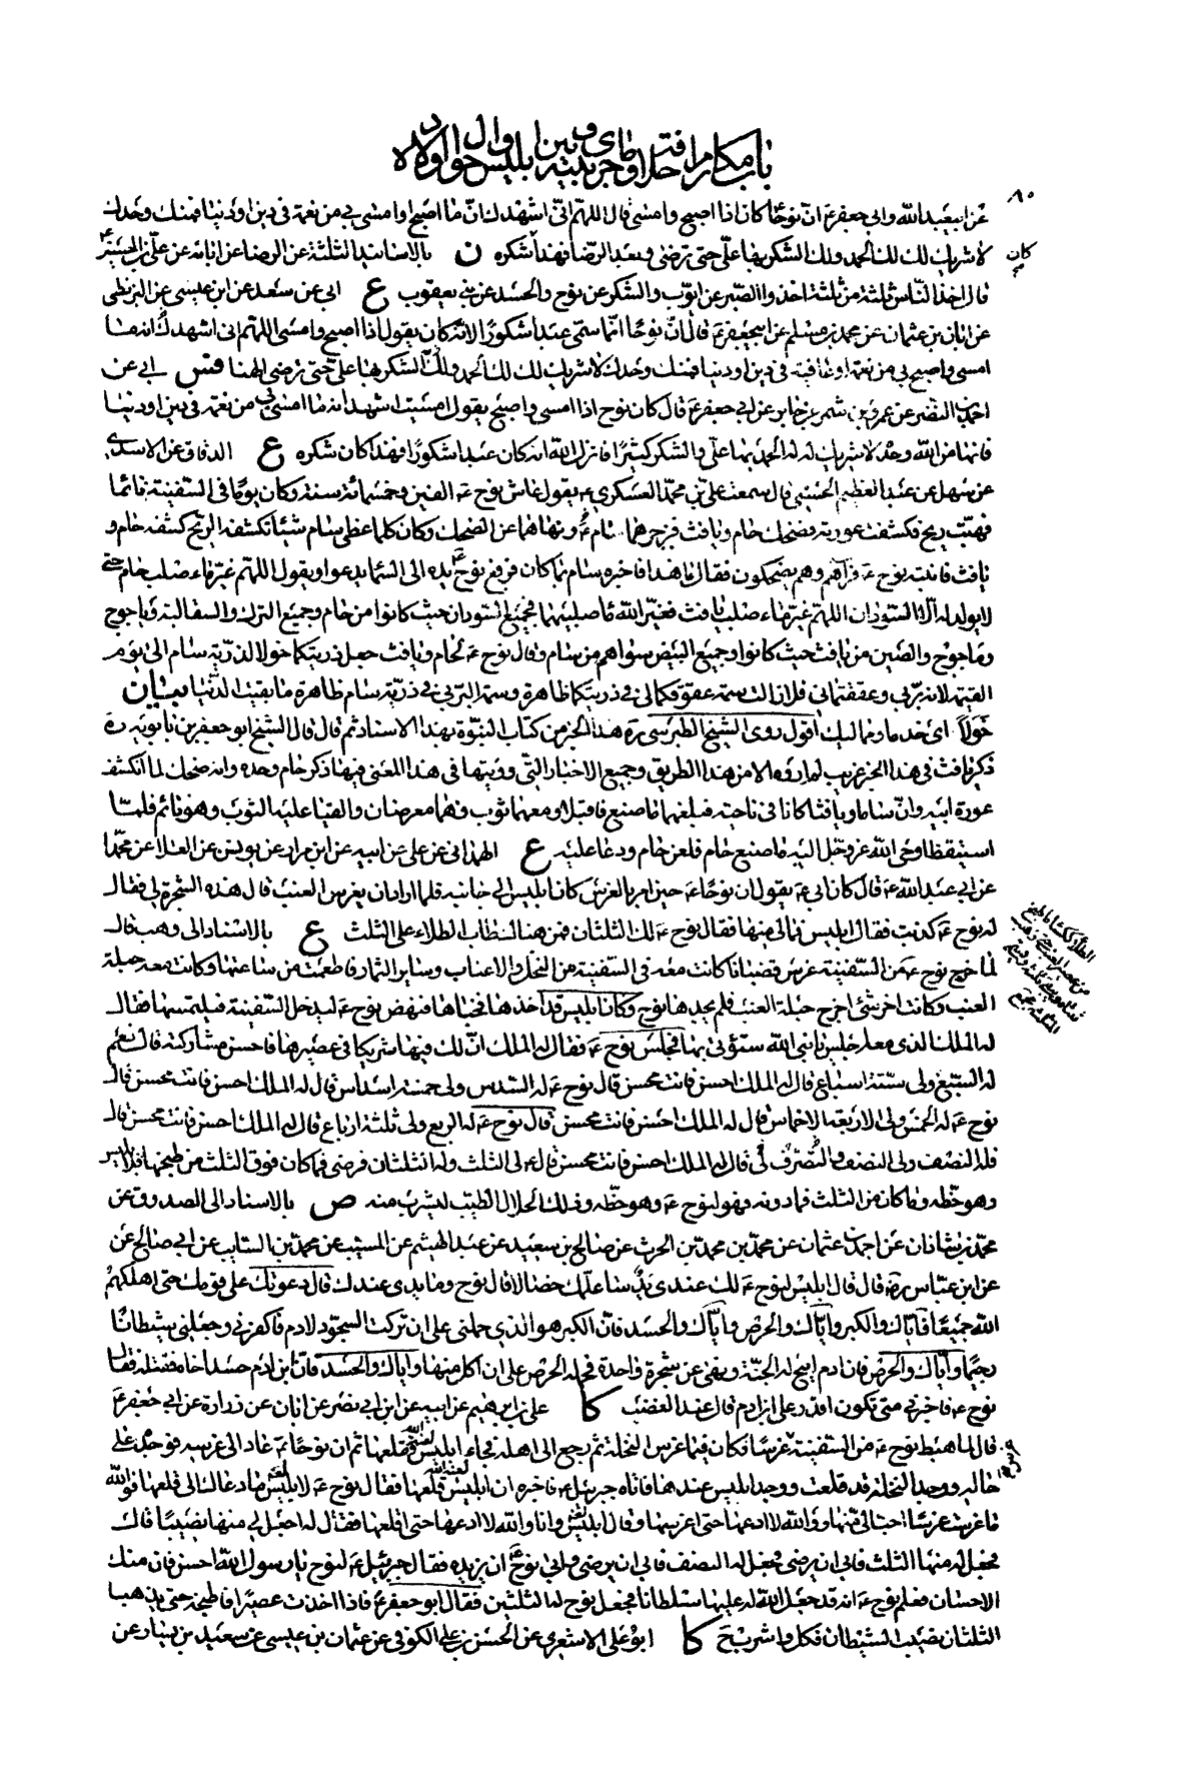 باب مكارم اخلاقه وما جرى بينه وبين ابليس واحوال اولاده
عن ابيعبد الله وابي جعفر ع ان نوحا كان اذا اصبح وامسى قال اللهم اني اشهدك ان ما اصبح او امسى بي من نعمة في دين او دنيا فمنك وحدك
لا شريك لك لك الحمد ولك الشكر بها علي حتى ترضى وبعد الرضا فهذا شكره ن بالاسانيد الثلثة عن الرضا عن ابائه عن علي بن الحسين ع
قال اخذ الناس ثلثة من ثلثة اخذوا الصبر عن ايوب والشكر عن نوح والحسد عن بني يعقوب ع ابي عن سعد عن ابن عيسى عن البزنطي
عن ابان بن عثمان عن محمد بن مسلم عن ابيجعفر ع قال ان نوحا انما سمي عبدا شكورا لانه كان يقول اذا اصبح وامسى اللهم اني اشهدك انه ما
امسى واصبح بي من نعمة او عافية في دين او دنيا فمنك وحدك لا شريك لك لك الحمد ولك الشكر بها علي حتى ترضى الهنا فس ابي عن
احمد بن النضر عن عمرو بن شمر عن جابر عن ابي جعفر ع قال كان نوح اذا امسى واصبح يقول امسيت اشهد انه ما امسى بي من نعمة في دين او دنيا
فانها من الله وحده لا شريك له له الحمد بها علي والشكر كثيرا فانزل الله انه كان عبدا شكورا فهذا كان شكره ع الدقاق عن الاسدي
عن سهل عن عبد العظيم الحسني قال سمعت علي بن محمد العسكري ع يقول عاش نوح ع الفين وخمسمائة سنة وكان يوما في السفينة نائما
فهبت ريح فكشفت عورته فضحك حام ويافث فزجرهما سام ع ونهاهما عن الضحك وكان كلما غطى سام شيئا تكشفه الريح كشفه حام و
يافث فانتبه نوح ع فرآهم وهم يضحكون فقال ما هذا فاخبره سام بما كان فرفع نوح ع يده الى السماء يدعو ويقول اللهم غير ماء صلب حام حتى
لا يولد له الا السودان اللهم غير ماء صلب يافث فغير الله ماء صلبيهما فجميع السودان حيث كانوا من حام وجميع الترك والسقالبة وياجوج
وماجوج والصين من يافث حيث كانوا وجميع البيض سواهم من سام وقال نوح ع لحام ويافث جعل ذريتكما خولا لذرية سام الى يوم
القيمة لانه بر بي وعققتماني فلا زالت سمة عقوقكما لي في ذريتكما ظاهرة وسمة البر بي في ذرية سام ظاهرة ما بقيت الدنيا بيان
خولا اي خدما ومماليك اقول روى الشيخ الطبرسي ره هذا الخبر من كتاب النبوة بهذا الاسناد ثم قال قال الشيخ ابو جعفر بن بابويه ره
ذكر يافث في هذا الخبر غريب لم اروه الا من هذا الطريق وجميع الاخبار التي رويتها في هذا المعنى فيها ذكر حام وحده وانه ضحك لما انكشفت
عورة ابيه وان ساما ويافثا كانا في ناحية فبلغهما ما صنع فاقبلا ومعهما ثوب وهما معرضان والقيا عليه الثوب وهو نائم فلما
استيقظ اوحى الله عز وجل اليه ما صنع حام فلعن حام ودعا عليه ع الهمداني عن علي عن ابيه عن ابن مرار عن يونس عن العلا عن محمد
عن ابي عبد الله ع قال كان ابي ع يقول ان نوحا ع حين امر بالغرس كان ابليس الى جانبه فلما اراد ان يغرس العنب قال هذه الشجرة لي فقال
له نوح ع كذبت فقال ابليس فما لي منها فقال نوح ع لك الثلثان فمن هنا طاب الطلاء على الثلث ع بالاسناد الى وهب قال
لما خرج نوح ع من السفينة غرس قضبانا كانت معه في السفينة من النخل والاعناب وساير الثمار فاطعمت من ساعتها وكانت معه حبلة
العنب وكانت اخر شئ اخرج حبلة العنب فلم يجدها نوح وكان ابليس قد اخذها فخباها فنهض نوح ع ليدخل السفينة فيلتمسها فقال
له الملك الذي معه اجلس يا نبي الله ستؤتى بها فجلس نوح ع فقال له الملك ان لك فيها شريكا في عصيرها فاحسن مشاركته قال نعم
له السبع ولي ستة اسباع قال له الملك احسن فانت محسن قال نوح ع له السدس ولي خمسة اسداس قال له الملك احسن فانت محسن قال
نوح ع له الخمس ولي الاربعة الاخماس قال له الملك احسن فانت محسن قال نوح ع له الربع ولي ثلثة ارباع قال له الملك احسن فانت محسن قال
فله النصف ولي النصف ولي التصرف قال له الملك احسن فانت محسن قال ع لي الثلث وله الثلثان فرضي فما كان فوق الثلث من طبخها فلابليس
وهو حظه وما كان من الثلث فما دونه فهو لنوح ع وهو حظه وذلك الحلال الطيب ليشرب منه ص بالاسناد الى الصدوق عن
محمد بن شاذان عن احمد بن عثمان عن محمد بن محمد بن الحرث عن صالح بن سعيد عن عبد الهيثم عن المسيب عن محمد بن السايب عن ابي صالح عن
عن ابن عباس رضه قال قال ابليس لنوح ع لك عندي يد ساعلمك خصالا قال نوح وما يدي عندك قال دعوتك على قومك حتى اهلكهم
الله جميعا فاياك والكبر واياك والحرص واياك والحسد فان الكبر هو الذي حملني على ان تركت السجود لادم فاكفرني وجعلني شيطانا
رجيما واياك والحرص فان ادم ابيح له الجنة ونهي عن شجرة واحدة فحمله الحرص على ان اكل منها واياك والحسد فان ابن ادم حسد اخاه فقتله فقال
نوح ع فاخبرني متى تكون اقدر على ابن ادم قال عند الغضب كا علي بن ابرهيم عن ابيه عن ابن ابي نصر عن ابان عن زرارة عن ابي جعفر ع
قال لما هبط نوح ع من السفينة غرس غرسا فكان فيما غرس النخلة ثم رجع الى اهله فجاء ابليس لعنه الله فقلعها ثم ان نوحا ع عاد الى غرسه فوجده على
حاله ووجد النخلة قد قلعت ووجد ابليس عندها فاتاه جبرئيل ع فاخبره ان ابليس لعنه الله قلعها فقال نوح ع لابليس ما دعاك الى قلعها فوالله
ما غرست غرسا احب الي منها ووالله لا ادعها حتى اغرسها وقال ابليس وانا والله لا ادعها حتى اقلعها فقال له اجعل لي منها نصيبا قال
فجعل له منها الثلث فابى ان يرضى فجعل له النصف فابى ان يرضى وابى نوح ع ان يزيده فقال جبرئيل ع لنوح يا رسول الله احسن فان منك
الاحسان فعلم نوح ع انه قد جعل الله له عليها سلطانا فجعل نوح له الثلثين فقال ابو جعفر ع فاذا اخذت عصيرا فاطبخه حتى يذهب
الثلثان نصيب الشيطان فكل واشرب ح كا ابو علي الاشعري عن الحسن بن علي الكوفي عن عثمان بن عيسى عن سعيد بن يسار عن
كان
الطلاء ككساء ما طبخ
من عصير العنب حتى ذهب